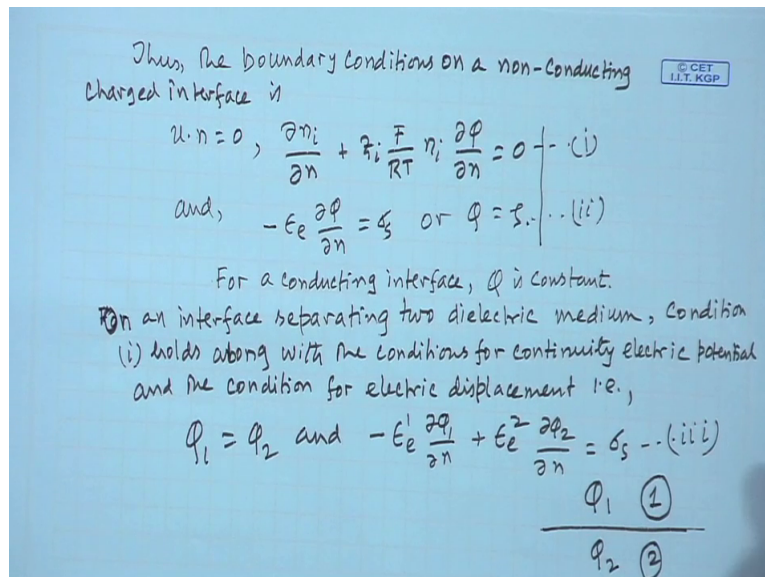 Thus, the boundary conditions on a non-conducting
© CET
I.I.T. KGP
charged interface is
u·n = 0, ∂nᵢ/∂n + zᵢ F/RT nᵢ ∂φ/∂n = 0 -- ·(i)
and, -εₑ ∂φ/∂n = σₛ or φ = ζ. ·· (ii)
For a conducting interface, φ is constant.
On an interface separating two dielectric medium, condition
(i) holds along with the conditions for continuity electric potential
and the condition for electric displacement i.e.,
φ₁ = φ₂ and -εₑ¹ ∂φ₁/∂n + εₑ² ∂φ₂/∂n = σₛ --(iii)
φ₁ ①
φ₂ ②